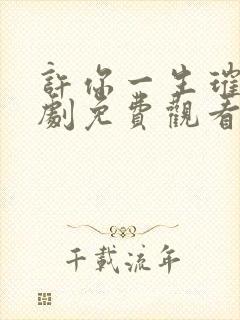 許你一生璀
劇免費觀看
千載流年